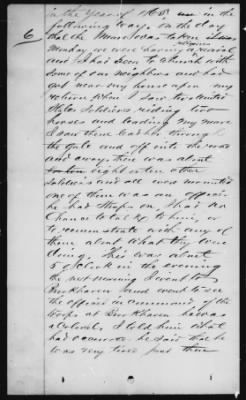 in the Year of 1865 use in the
following ways, on the day
6 that the Mare was taken it was
Monday we were having a revival
and I had been to church with
some of our neighbors and had
got near my house upon my
return when I saw two United
States Soldiers riding two
horses and leading my mare
I saw them lead her through
the gate and off into the road
and away, there was about
eight or ten other
Soldiers and all were mounted
one of them was an officer
he had straps on. I had no
chance to talk to him, or
to remonstrate with any of
them about what they were
doing, This was about
5 o'clock in the evening
the next morning I went to
Brookhaven and went to see
the officer in command, of the
troops at Brookhaven he was
a Colonel. I told him what
had occurred he said that he
was very tired just then